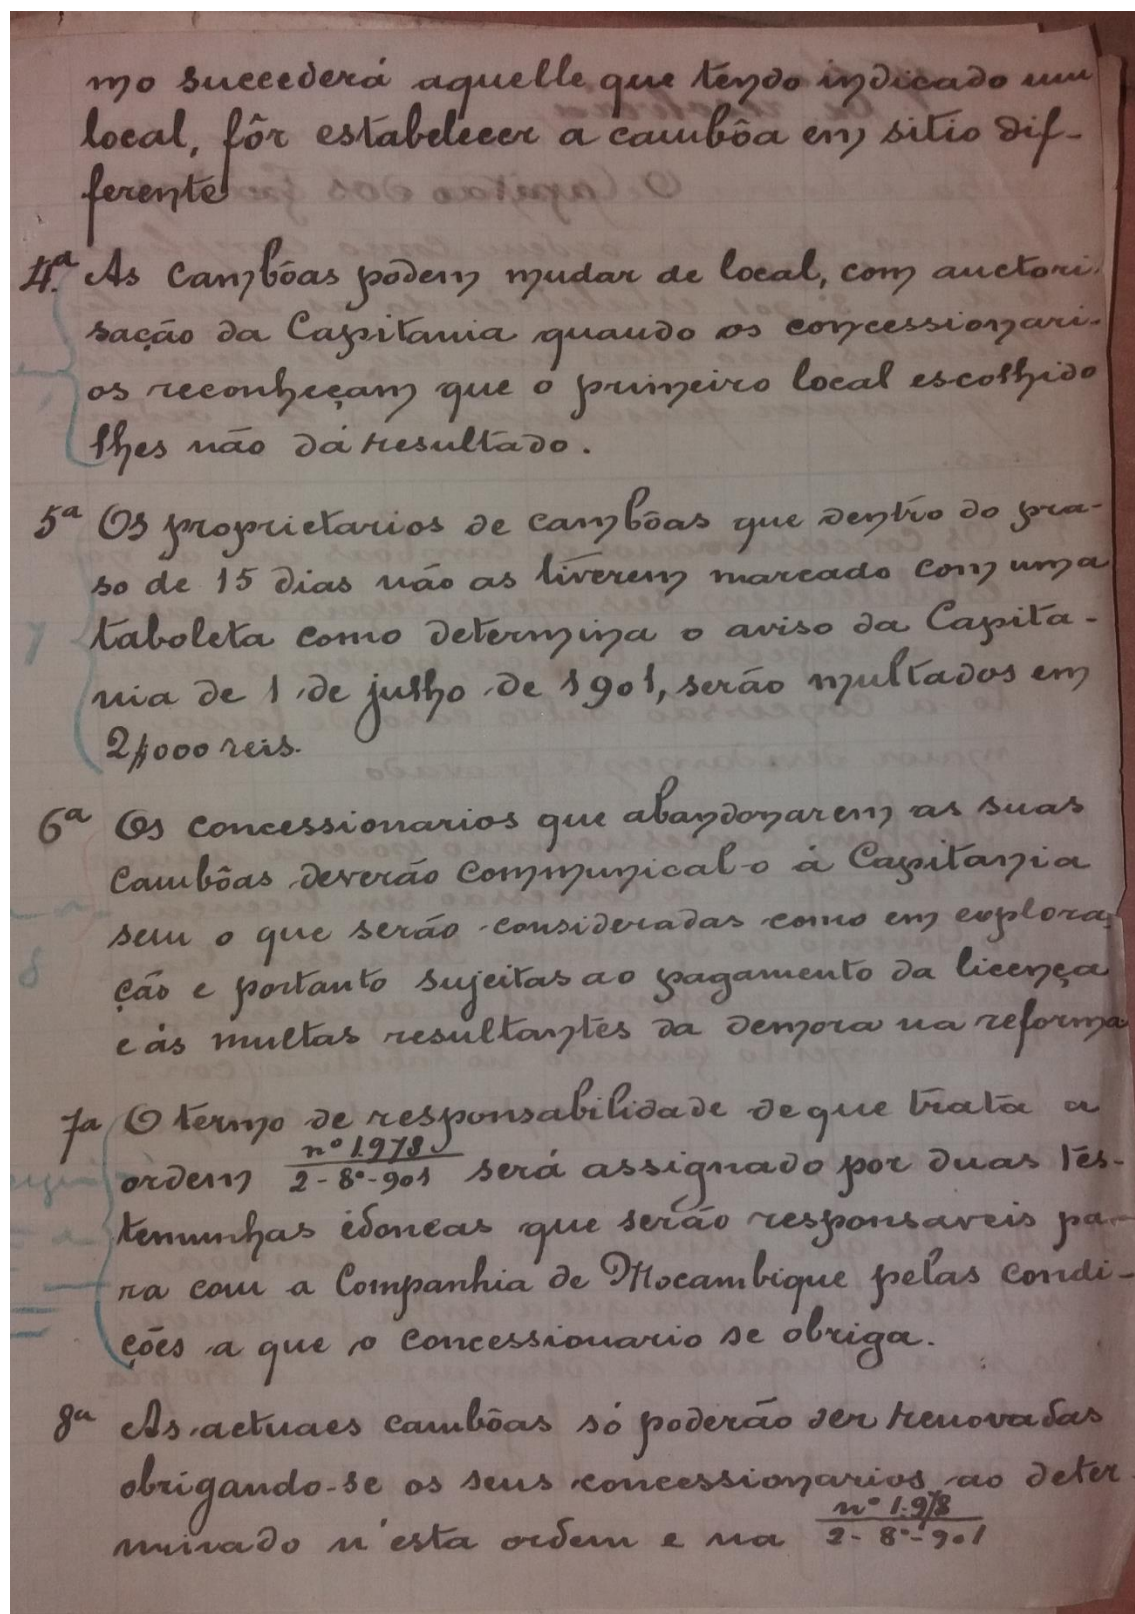 mo succederá aquelle que tendo indicado um
local, fôr estabelecer a cambôa em sitio dif-
ferente
4.ª As cambôas podem mudar de local, com auctori-
sação da Capitania quando os concessionari-
os reconheçam que o primeiro local escolhido
lhes não dá resultado.
5ª Os proprietarios de cambôas que dentro do pra-
so de 15 dias não as tiverem marcado com uma
taboleta como determina o aviso da Capita-
nia de 1 de julho de 1901, serão multados em
2$000 reis.
6ª Os concessionarios que abandonarem as suas
cambôas deverão communical-o á Capitania
sem o que serão consideradas como em explora-
ção e portanto sujeitas ao pagamento da licença
e ás multas resultantes da demora na reforma
7ª O termo de responsabilidade de que trata a
ordem nº 1.978 / 2-8º-901 será assignado por duas tes-
temunhas idoneas que serão responsaveis pa-
ra com a Companhia de Mocambique pelas condi-
ções a que o concessionario se obriga.
8ª As actuaes cambôas só poderão ser renovadas
obrigando-se os seus concessionarios ao deter-
minado n'esta ordem e na nº 1.978 / 2-8º-901